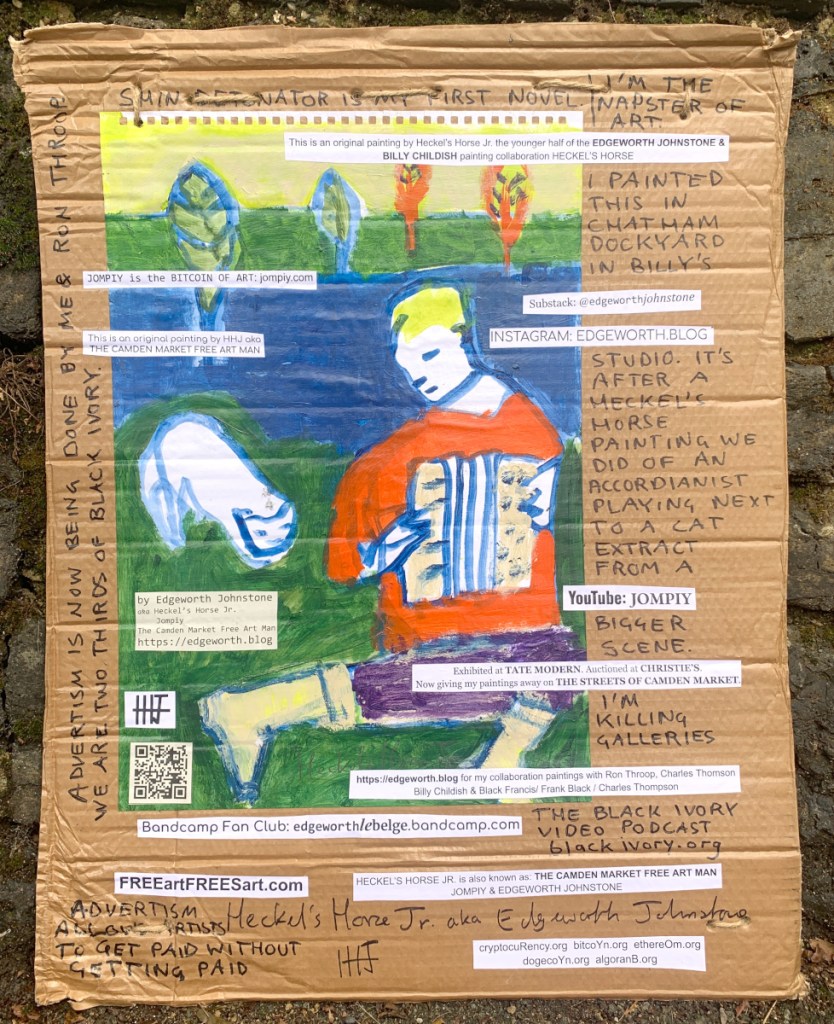 SHIN DETONATOR IS MY FIRST NOVEL.
I'M THE
NAPSTER OF
ART.
This is an original painting by Heckel's Horse Jr. the younger half of the EDGEWORTH JOHNSTONE &
BILLY CHILDISH painting collaboration HECKEL'S HORSE
I PAINTED
THIS IN
CHATHAM
DOCKYARD
IN BILLY'S
JOMPIY is the BITCOIN OF ART: jompiy.com
Substack: @edgeworthjohnstone
INSTAGRAM: EDGEWORTH.BLOG
This is an original painting by HHJ aka
THE CAMDEN MARKET FREE ART MAN
STUDIO. IT'S
AFTER A
HECKEL'S
HORSE
PAINTING WE
DID OF AN
ACCORDIANIST
PLAYING NEXT
TO A CAT
EXTRACT
FROM A
YouTube: JOMPIY
BIGGER
SCENE.
by Edgeworth Johnstone
aka Heckel's Horse Jr.
Jompiy
The Camden Market Free Art Man
https://edgeworth.blog
Exhibited at TATE MODERN. Auctioned at CHRISTIE'S.
Now giving my paintings away on THE STREETS OF CAMDEN MARKET.
I'M
KILLING
GALLERIES
HHJ
https://edgeworth.blog for my collaboration paintings with Ron Throop, Charles Thomson
Billy Childish & Black Francis/ Frank Black / Charles Thompson
ADVERTISM IS NOW BEING DONE BY ME & RON THROOP.
WE ARE TWO THIRDS OF BLACK IVORY.
Bandcamp Fan Club: edgeworthlebelge.bandcamp.com
THE BLACK IVORY
VIDEO PODCAST
blackivory.org
FREEartFREESart.com
HECKEL'S HORSE JR. is also known as: THE CAMDEN MARKET FREE ART MAN
JOMPIY & EDGEWORTH JOHNSTONE
ADVERTISM
ALLOWS ARTISTS
TO GET PAID WITHOUT
GETTING PAID
Heckel's Horse Jr. aka Edgeworth Johnstone
HHJ
cryptocuRency.org bitcoYn.org ethereOm.org
dogecoYn.org algoranB.org